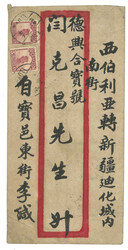 西伯利亚轉新疆迪化城内
南街
德興合寶號
閆克昌先生升
自寶邑東街李缄